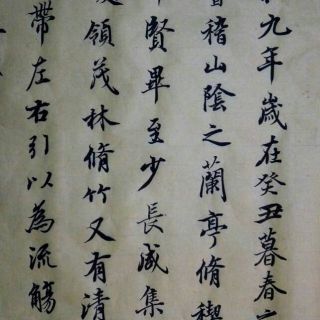 九年歲在癸丑暮春
稽山陰之蘭亭脩禊
賢畢至少長咸集
領茂林脩竹又有清
帶左右引以為流觴